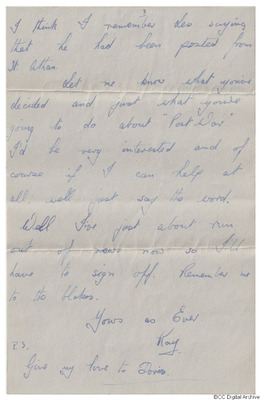 3
I think I remember Les saying
that he had been posted from
St. Athan.
Let me know what you've
decided and just what you're
going to do about "Post War"
I'd be very interested and of
course if I can help at
all, well just say the word.
Well I've just about run
out of news now so I'll
have to sign off. Remember me
to the blokes.
Yours as Ever
Ray
P.S.
Give my love to Doris.
©ICC Digital Archive